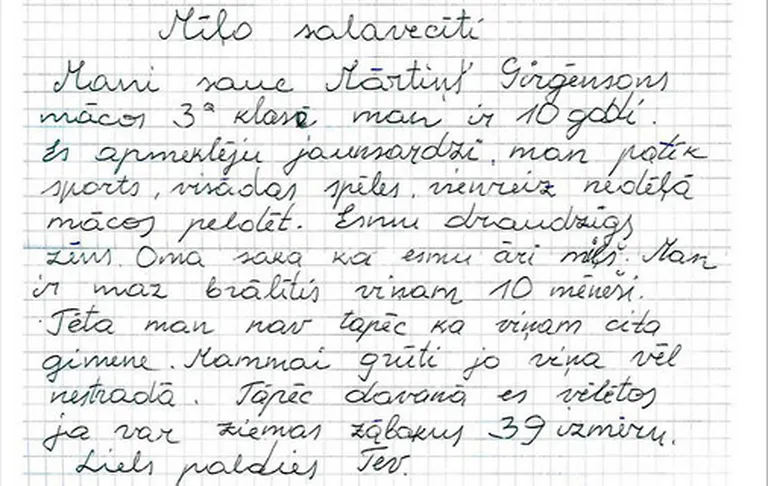 Mīļo salavecīti
Mani sauc Mārtiņš Girģensons
mācos 3ª klasē man ir 10 gadi.
Es apmeklēju jaunsardzi, man patīk
sports, visādas spēles, vienreiz nedēļā
mācos peldēt. Esmu draudzīgs
zēns. Oma saka ka esmu āri mīļš. Man
ir maz brālītis viņam 10 mēneši.
Tēta man nav tapēc ka viņam cita
ģimene. Mammai grūti jo viņa vēl
nestrādā. Tāpēc dāvanā es vēlētos
ja var ziemas zābakus 39 izmēru.
Liels paldies Tev.